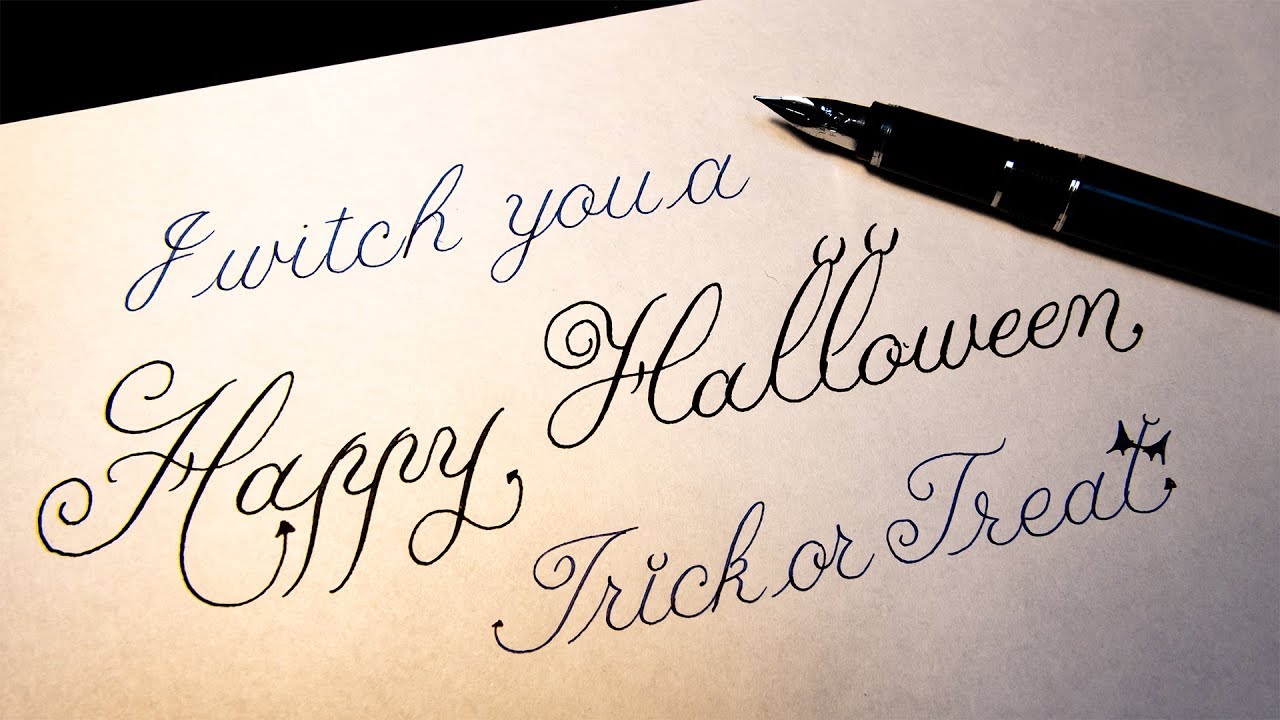 I witch you a
Happy Halloween
Trick or Treat